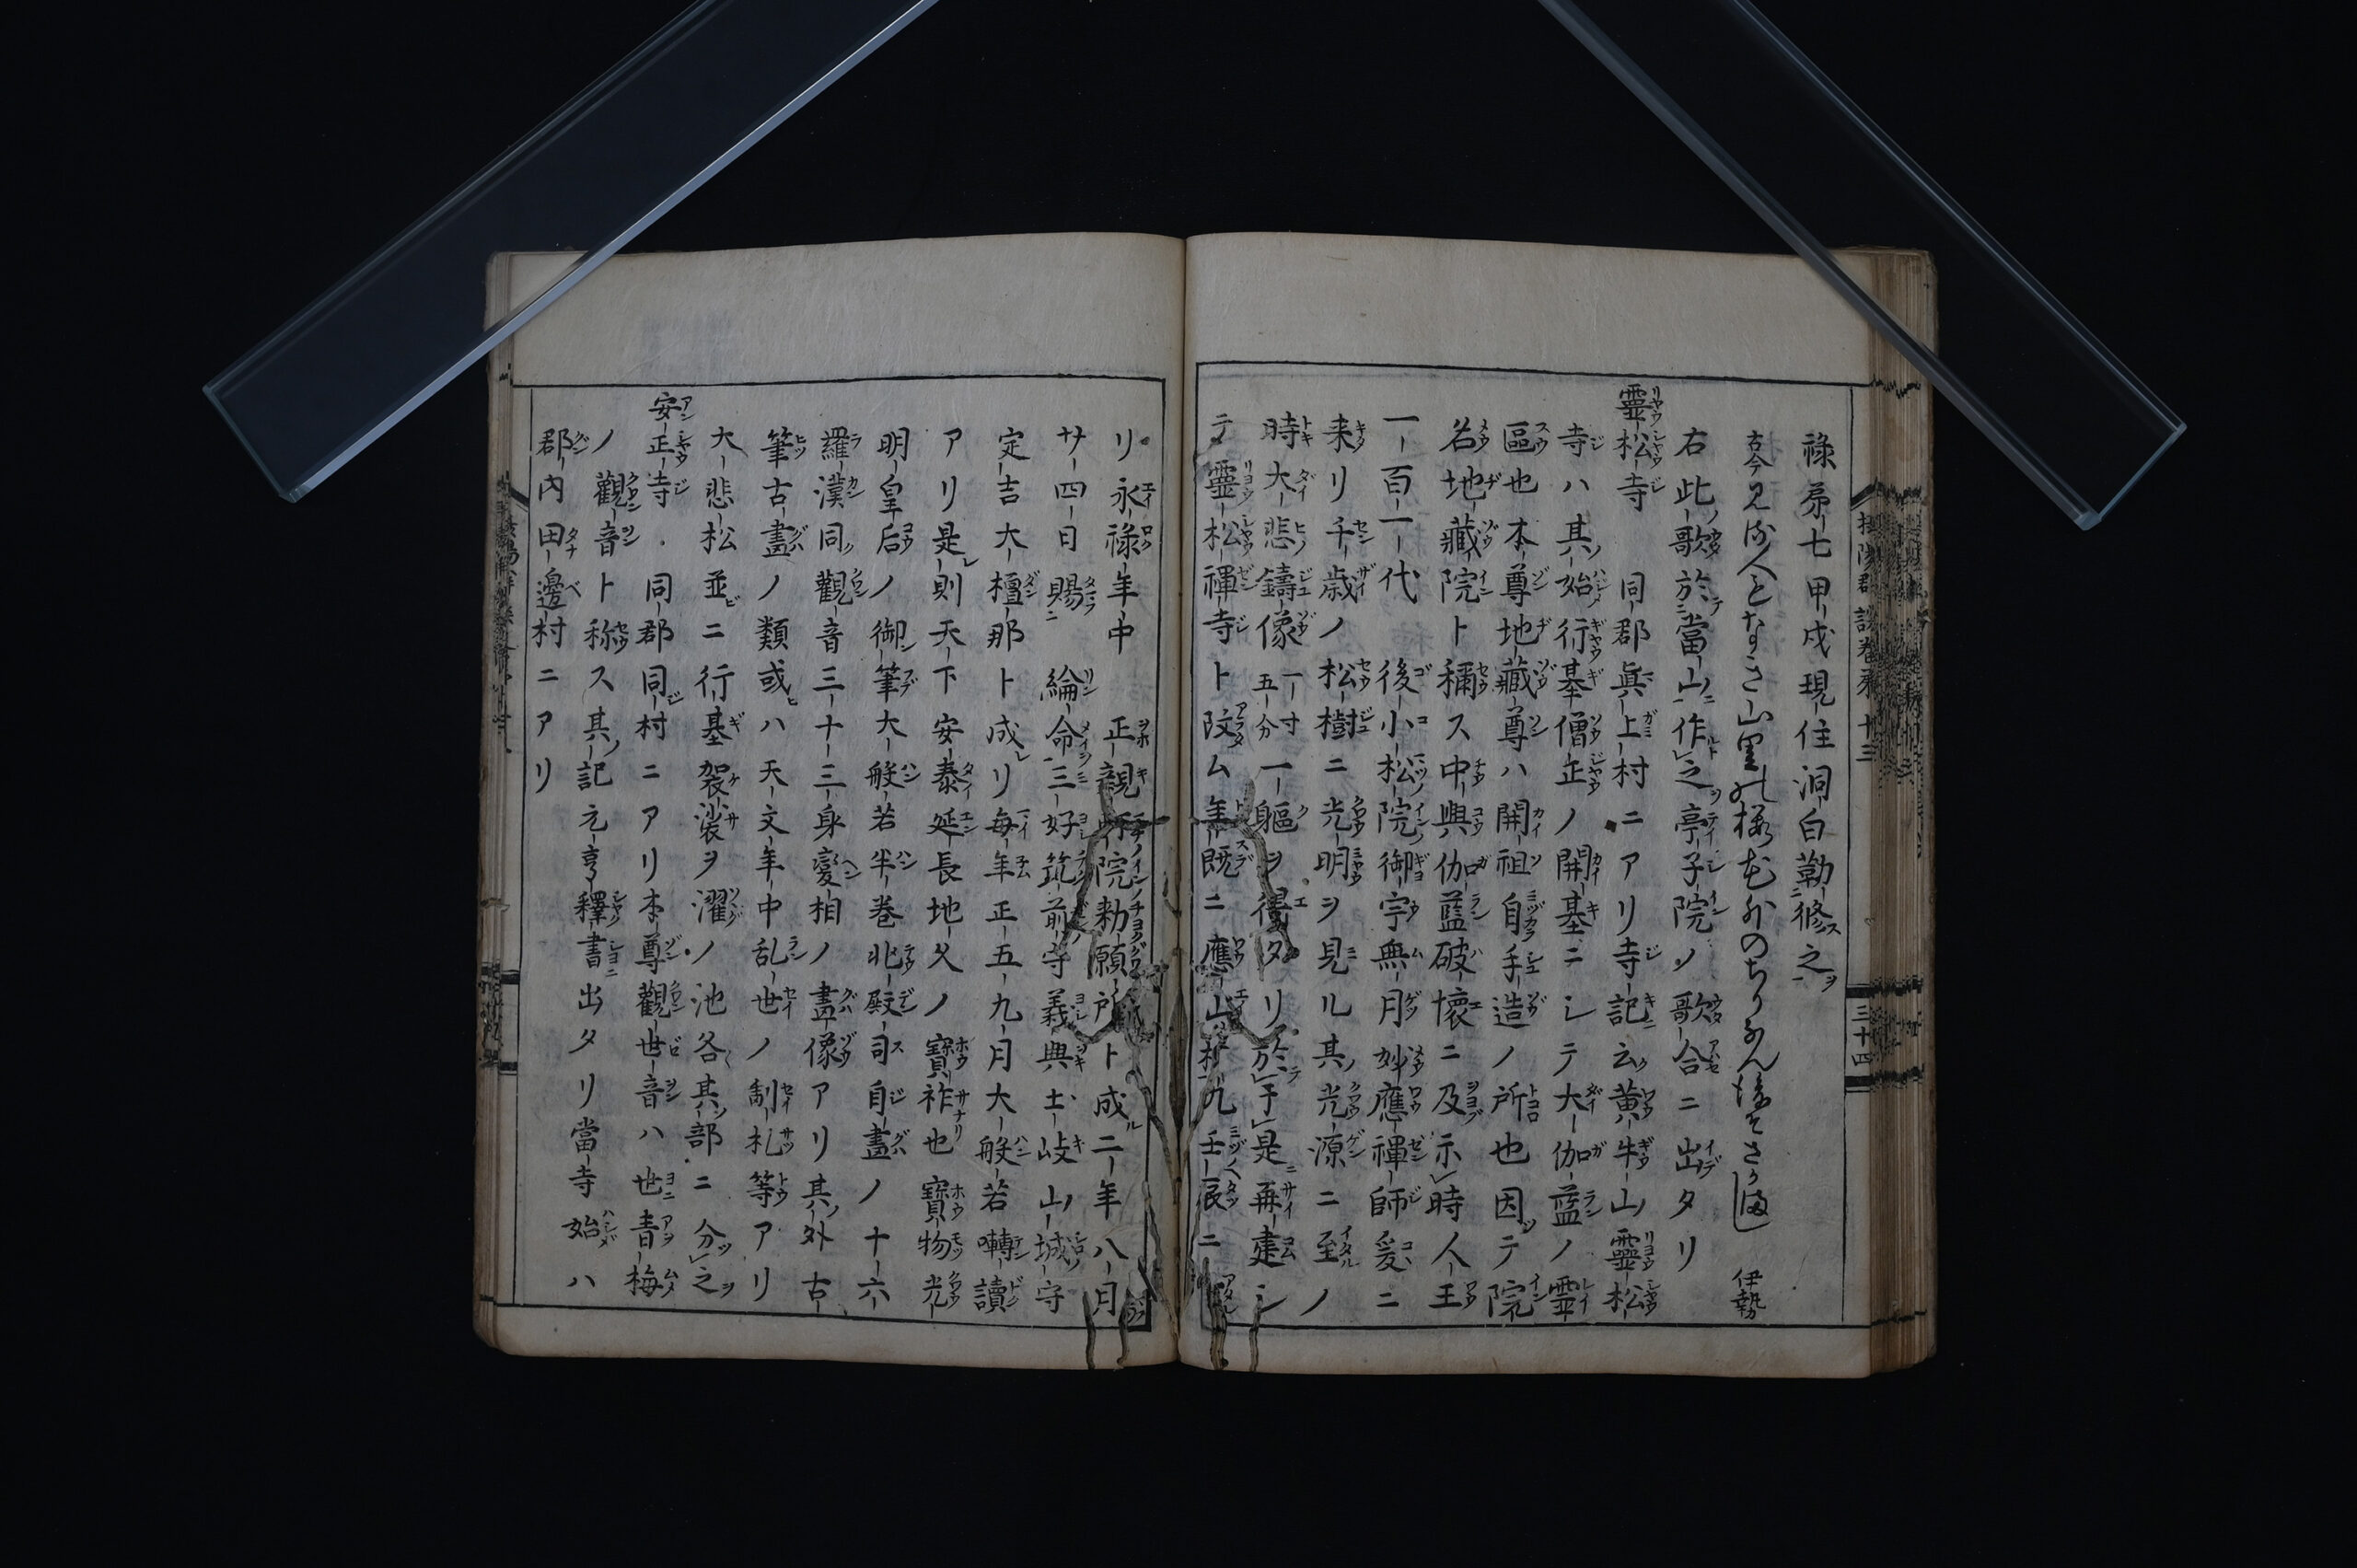 祿第七甲戌現住洞白勤修之
古今 見る人もなき山里の桜花外のちりなん後そさかまし 伊勢
右此歌於當山作之亭子院ノ歌合ニ出タリ
靈松寺 同郡眞上村ニアリ寺記云黄牛山靈松
寺ハ其始行基僧正ノ開基ニシテ大伽藍ノ靈
區也本尊地藏尊ハ開祖自手造ノ所也因テ院
名地藏院ト稱ス中興伽藍破壊ニ及示時人王
一百一代 後小松院御宇無月妙應禪師爰ニ
来リ千歳ノ松樹ニ光明ヲ見ル其光源ニ至ノ
時大悲鑄像一寸五分一軀ヲ得タリ於于是再建シ
テ靈松禪寺ト改ム年既ニ應永九壬辰ニ
リ永祿年中 正親町院勅願所ト成二年八月
廿四日賜 綸命三好筑前守義興土岐山城守
定吉大檀那ト成リ毎年正五九月大般若囀讀
アリ是則天下安泰延長地久ノ寶祚也寶物光
明皇后ノ御筆大般若半巻兆殿司自畫ノ十六
羅漢同觀音三十三身變相ノ畫像アリ其外古
筆古畫ノ類或ハ天文年中乱世ノ制札等アリ
大悲松並ニ行基袈裟ヲ濯ノ池各其部ニ分之
安正寺 同郡同村ニアリ本尊觀世音ハ世青梅
ノ觀音ト称ス其記元亨釋書出タリ當寺始ハ
郡内田邊村ニアリ
攝陽群談巻第十三
三十四